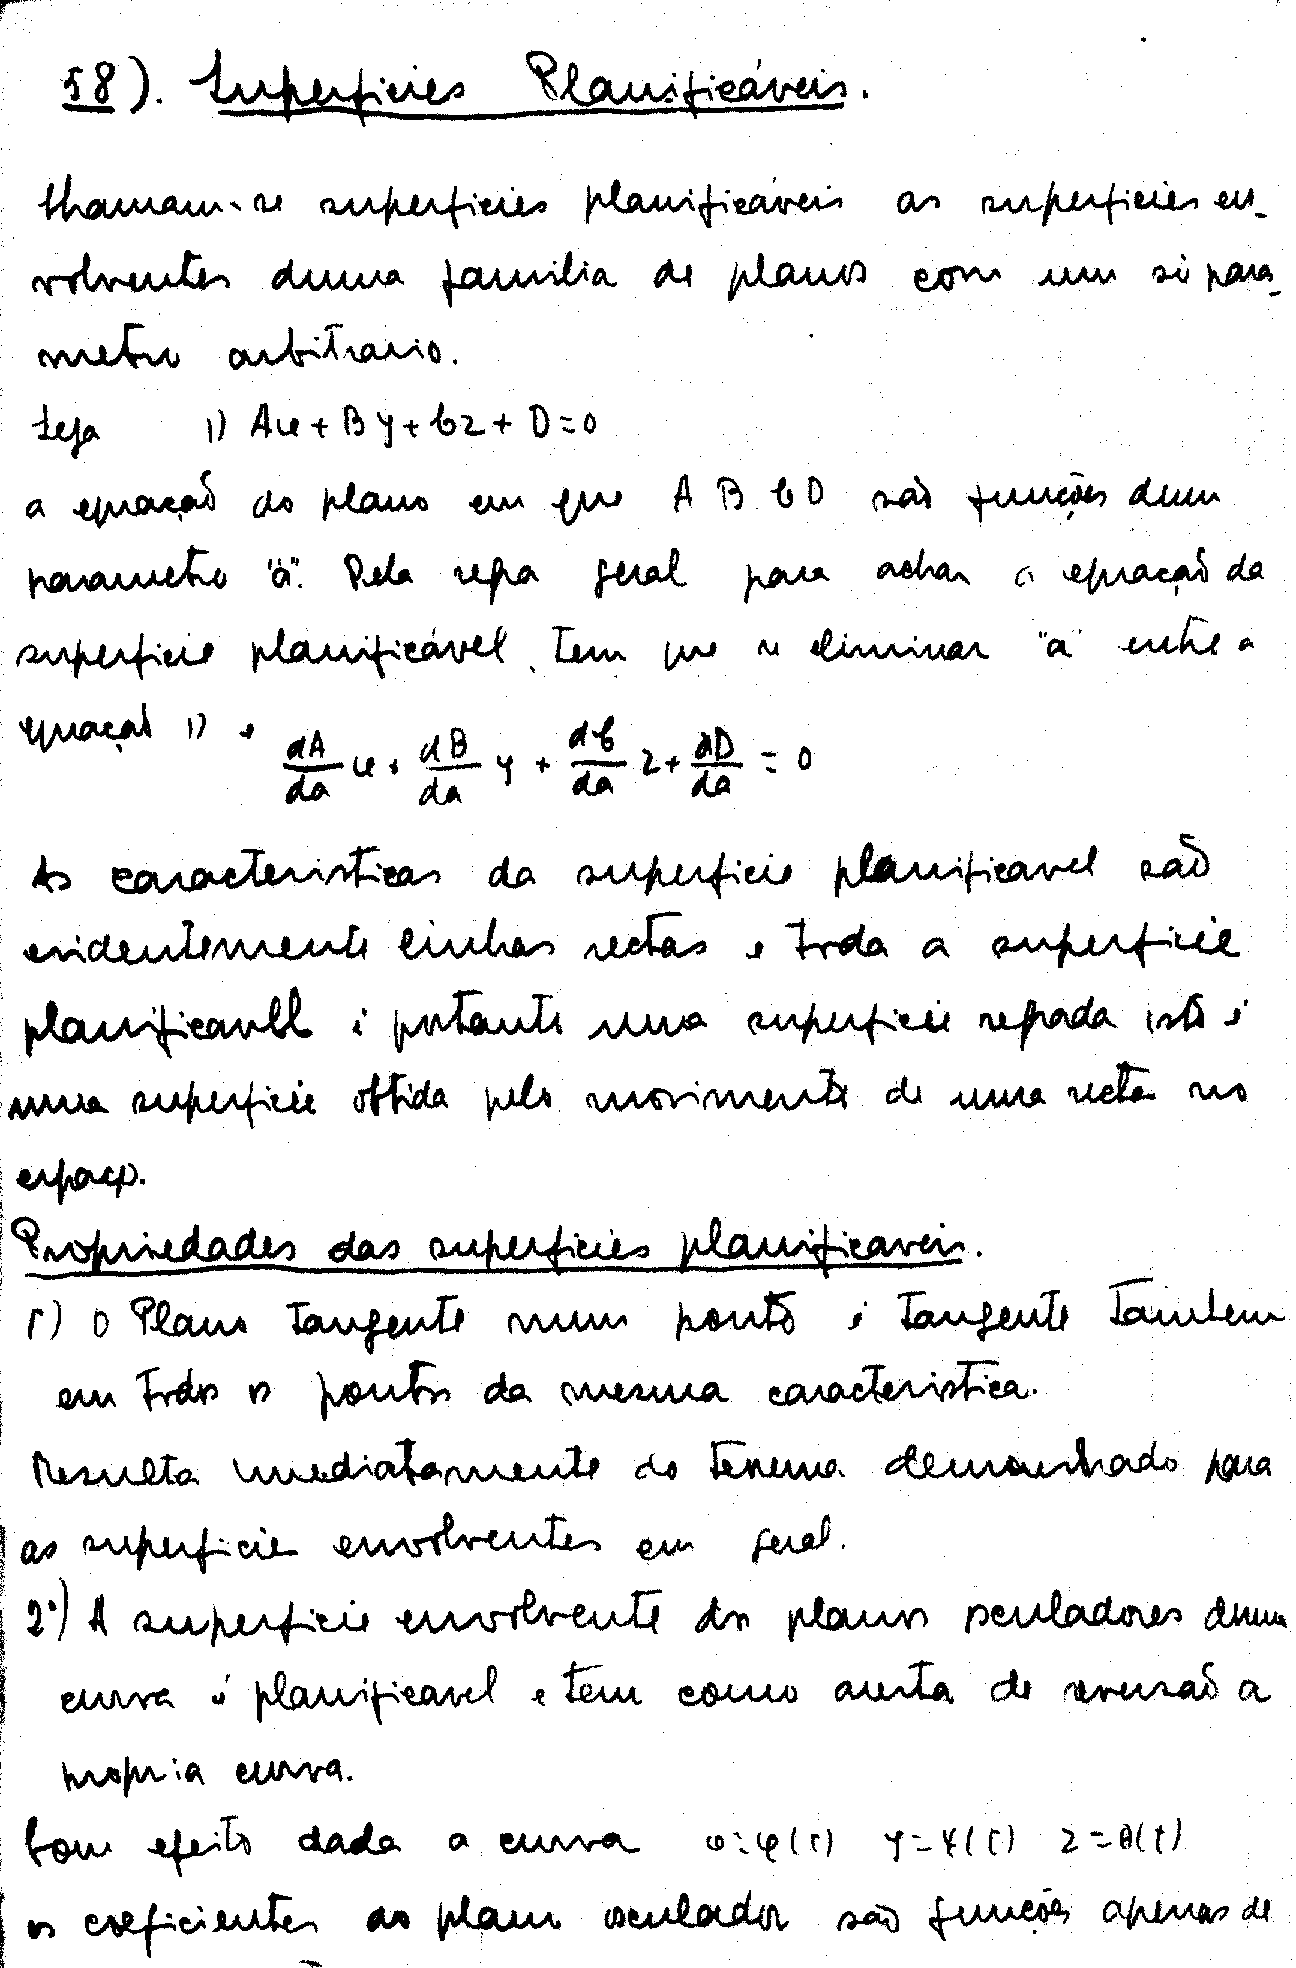 58). Superficies Planificáveis.
Chamam-se superficies planificáveis as superficies en-
volventes duma familia de planos com um só para-
metro arbitrario.
Seja 1) Ax + By + Cz + D = 0
a equação do plano em que A B C D são funções dum
parametro "a". Pela regra geral para achar a equação da
superficie planificável, tem que se eliminar "a" entre a
equação 1) e dA/da x + dB/da y + dC/da z + dD/da = 0
As caracteristicas da superficie planificavel são
evidentemente linhas rectas e toda a superficie
planificavel é portanto uma superficie regrada isto é
uma superficie obtida pelo movimento de uma recta no
espaço.
Propriedades das superficies planificaveis.
1º) O Plano tangente num ponto é tangente tambem
em todos os pontos da mesma caracteristica.
Resulta imediatamente do teorema demonstrado para
as superficie envolventes em geral.
2º) A superficie envolvente dos planos osculadores duma
curva é planificavel e tem como aresta de reversão a
propria curva.
Com efeito dada a curva x=φ(t) y=ψ(t) z=θ(t)
os coeficientes do plano osculador são funções apenas de